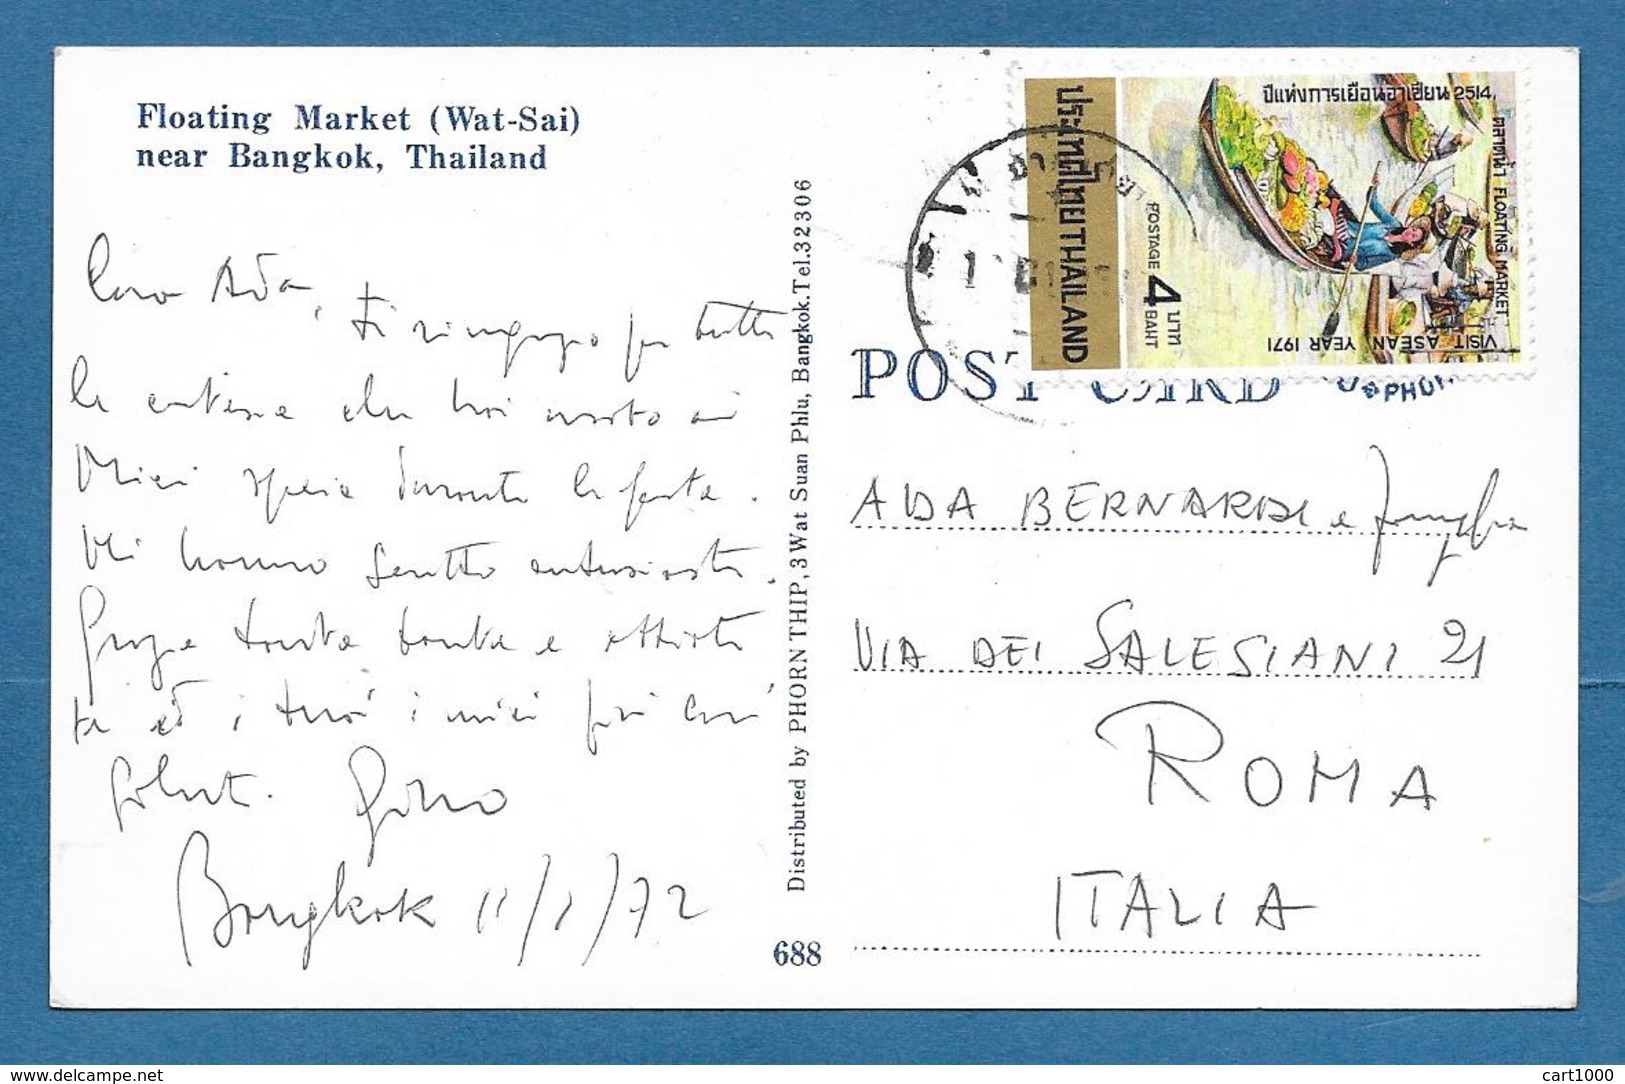 Floating Market (Wat-Sai)
near Bangkok, Thailand
Cara Ada,
ti ringrazio per tutte
le cartoline che hai
miei durante la festa.
Mi hanno scritto entusiasti.
Grazie tanto tanto e
te ed i tuoi i miei più cari
saluti.
Bangkok 11/1/72
Distributed by PHORN THIP, 3 Wat Suan Phlu, Bangkok. Tel. 32306
688
POST CARD
ประเทศไทย THAILAND
ปีแห่งการเยือนอาเซียน 2514
ตลาดน้ำ FLOATING MARKET
VISIT ASEAN YEAR 1971
POSTAGE 4 บาท BAHT
ADA BERNARDI e famiglia
VIA DEI SALESIANI 21
ROMA
ITALIA
www.delcampe.net
cart1000